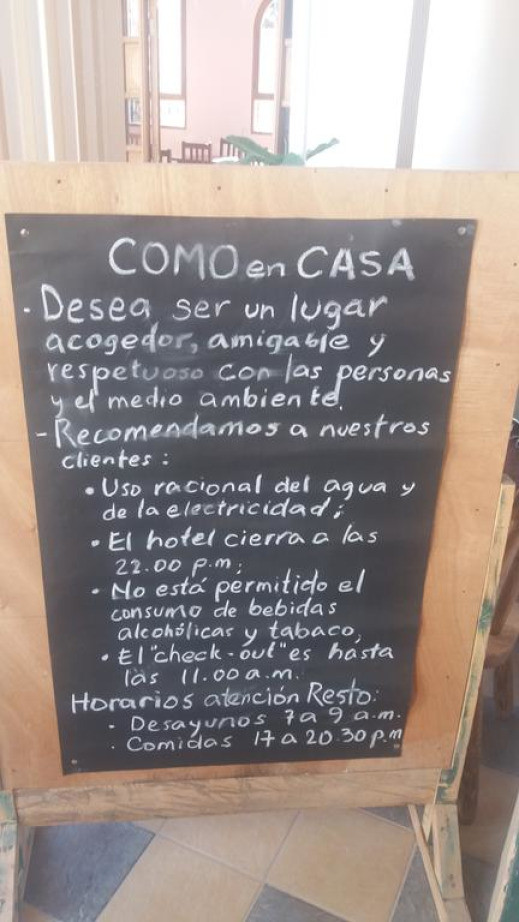 COMO en CASA
· Desea ser un lugar
acogedor, amigable y
respetuoso con las personas
y el medio ambiente.
- Recomendamos a nuestros
clientes :
• Uso racional del agua y
de la electricidad;
• El hotel cierra a las
22.00 p.m;
• No está permitido el
consumo de bebidas
alcohólicas y tabaco,
• El "check-out" es hasta
las 11.00 a.m.
Horarios atención Resto:
· Desayunos 7 a 9 a.m.
· Comidas 17 a 20.30 p.m